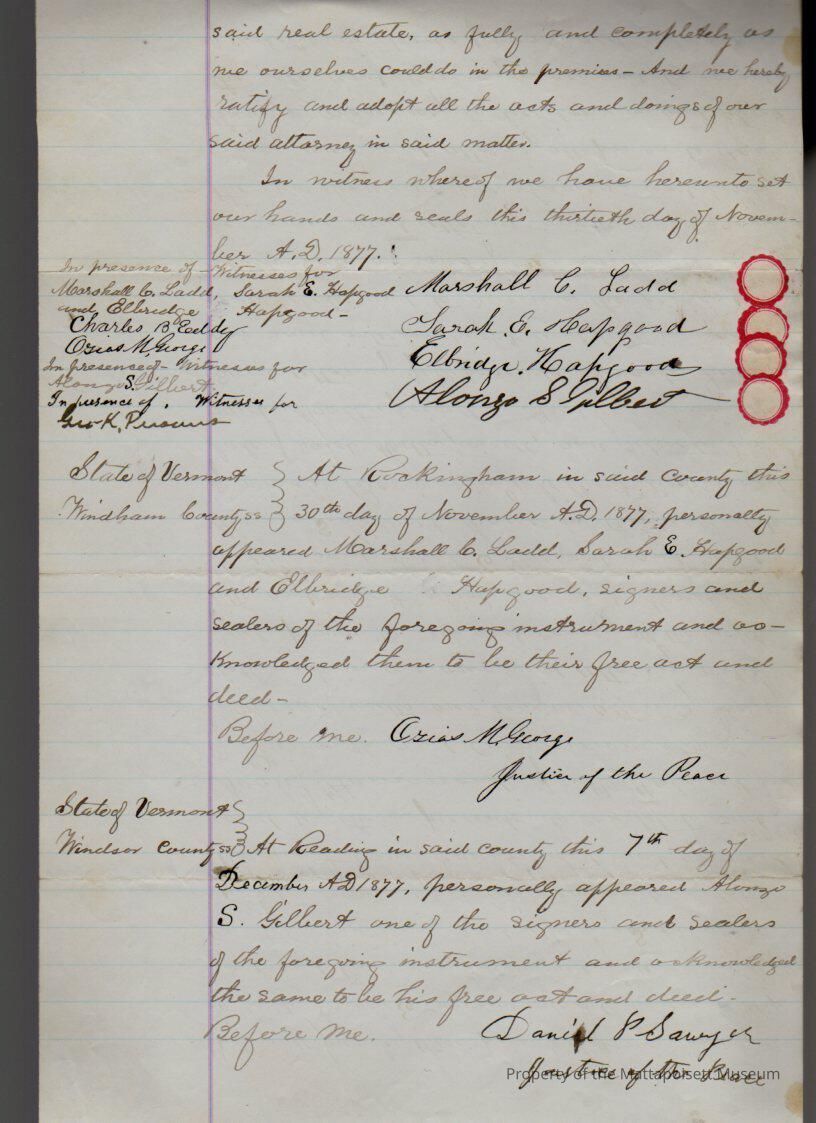 said real estate, as fully and completely as
we ourselves could do in the premises – And we hereby
ratify and adopt all the acts and doings of our
said attorney in said matter.
In witness whereof we have hereunto set
our hands and seals this thirtieth day of Novem-
ber A.D. 1877.
In presence of – Witnesses for
Marshall C. Ladd, Sarah E. Hapgood
and Elbridge Hapgood –
Charles B Eaddy
Ozias M. George
In presence of – Witnesses for
Alonzo S. Gilbert
In presence of . Witnesses for
Geo K.
Marshall C. Ladd
Sarah. E. Hapgood
Elbridge. Hapgood
Alonzo S Gilbert
State of Vermont
Windham County ss
At Rockingham in said county this
30th day of November A.D. 1877, personally
appeared Marshall C. Ladd, Sarah E. Hapgood
and Elbridge Hapgood, signers and
sealers of the foregoing instrument and ac-
knowledged them to be their free act and
deed –
Before me. Ozias M. George
Justice of the Peace
State of Vermont
Windsor County ss At Reading in said county this 7th day of
December A.D 1877, personally appeared Alonzo
S. Gilbert one of the signers and sealers
of the foregoing instrument and acknowledged
the same to be his free act and deed –
Before me. Daniel P Sawyer
Justice of the Peace
Property of the Mattapoisett Museum